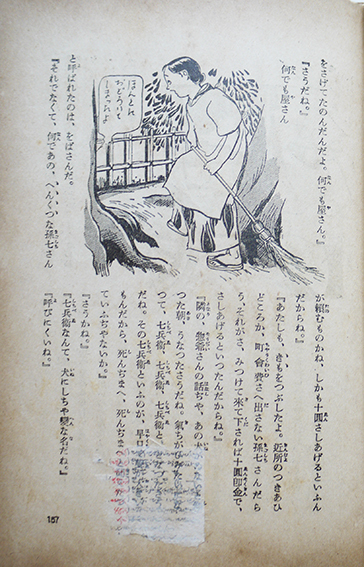 をさげてたのんだんだよ。何でも屋さん。』
『さうだね。』
何でも屋さん
と呼ばれたのは、をばさんだ。
『それでなくて、何であの、へんくつな孫七さん
ほんとに
おどろいち
まひつたよ
が頼むものかね、しかも十圓さしあげるといふん
だからね。』
『あたしも、きもをつぶしたよ。近所のつきあひ
どころか、町會費さへ出さない孫七さんだら
う、それがさ、みつけて來て下されば十圓印金で、
さしあげるといつたんだからね。』
『隣の、惣爺さんの話ぢや、あのぬ
つた朝、うなつたさうだね。氣ちがひ
つて、七兵衛、七兵衛、七兵衛と、
だね。その七兵衛といふのが、早口
もんだから、死んぢまへ、死んぢまへ
ていふぢやないか。』
『さうかね。』
『七兵衛なんて、犬にしちや變な名だね。』
『呼びにくいね。』
167